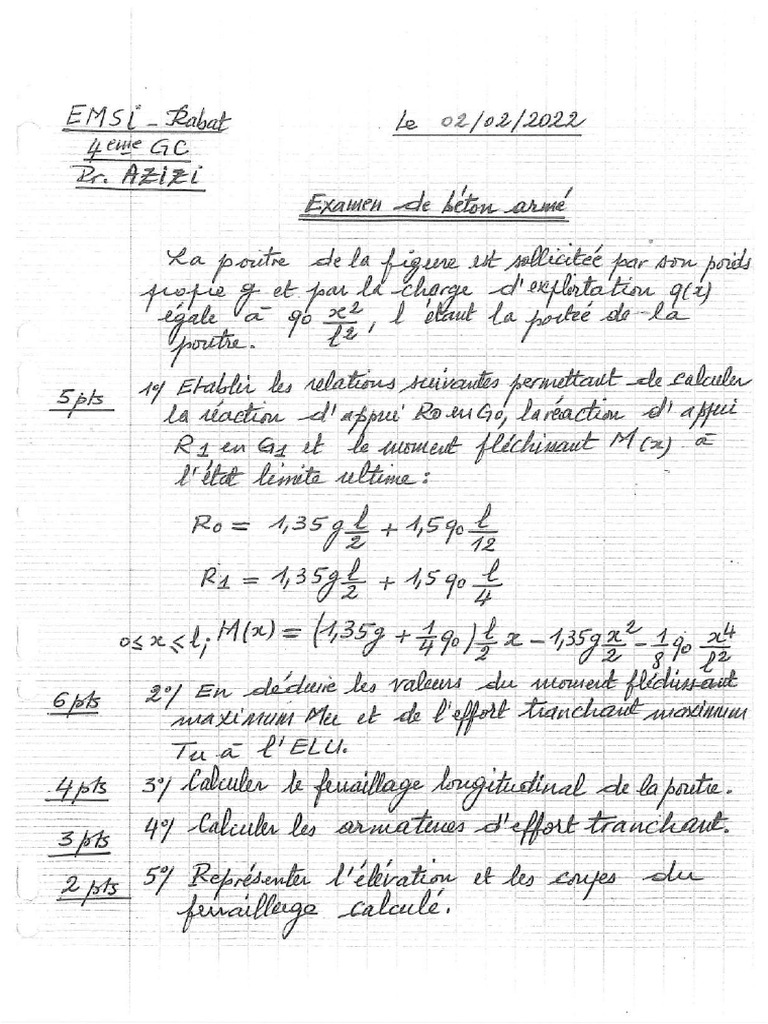 EMSI - Rabat
Le 02/02/2022
4eme GC
Pr. AZIZI
Examen de béton armé
La poutre de la figure est sollicitée par son poids
propre g et par la charge d'exploitation q(x)
égale à q0 x²/l², l étant la portée de la
poutre.
5pts 1°/ Etablir les relations suivantes permettant de calculer
la réaction d'appui R0 en G0, la réaction d'appui
R1 en G1 et le moment fléchissant M(x) à
l'état limite ultime :
R0 = 1,35g l/2 + 1,5 q0 l/12
R1 = 1,35g l/2 + 1,5 q0 l/4
0≤x≤l; M(x) = (1,35g + 1/4 q0) l/2 x - 1,35g x²/2 - 1/8 q0 x⁴/l²
6pts 2°/ En déduire les valeurs du moment fléchissant
maximum Mu et de l'effort tranchant maximum
Tu à l'ELU.
4pts 3°/ Calculer le ferraillage longitudinal de la poutre.
3pts 4°/ Calculer les armatures d'effort tranchant.
2pts 5°/ Représenter l'élévation et les coupes du
ferraillage calculé.